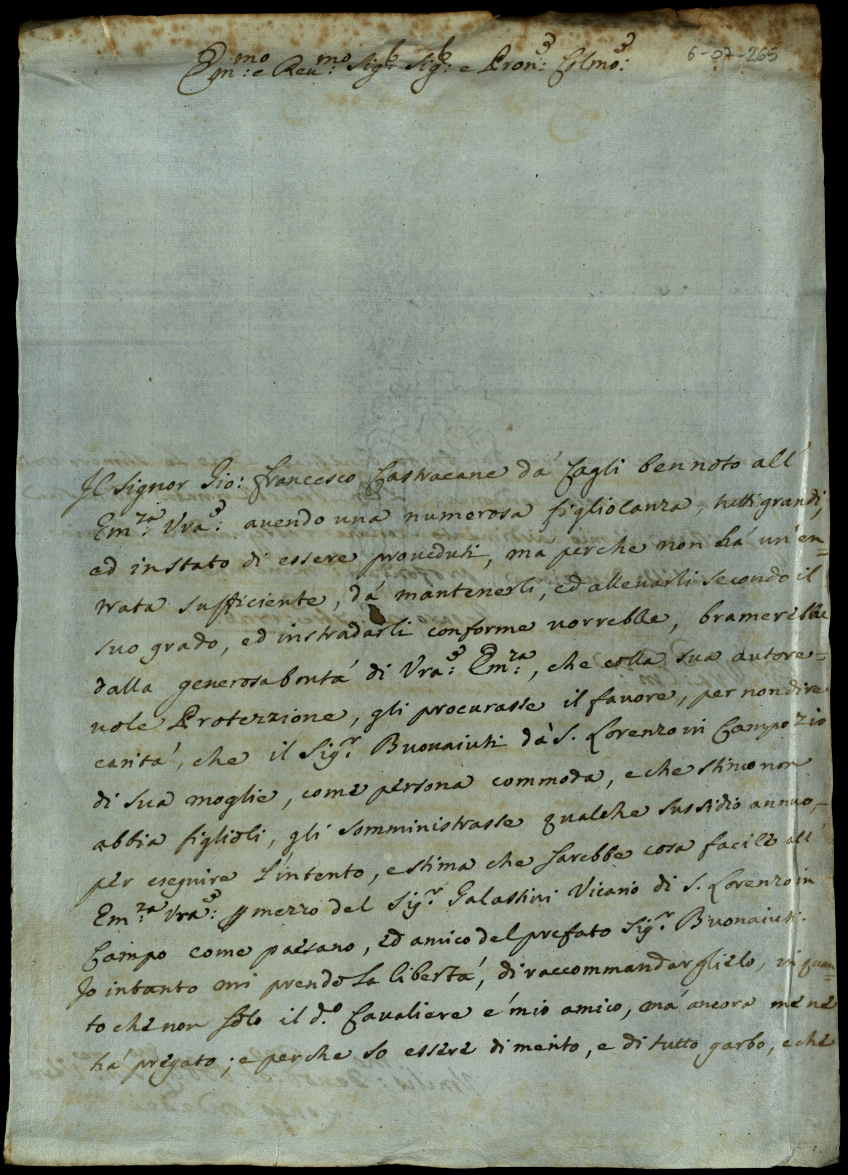 Em:mo e Reu:mo Sig:r Sig:r e Pron:e Colmo:
6-07-265
Il Signor Gio: Francesco Castracane dá Cagli ben noto all'
Em:za Vra: auendo una numerosa figliolanza, tutti grandi,
ed in stato di essere proueduti, ma perche non há un'en=
trata sufficiente, dá mantenerli, ed alleuarli secondo il
suo grado, ed instradarli conforme uorrebbe, bramerebbe
dalla generosa bontá di Vra: Em:za, che colla sua autore=
uole Protezzione, gli procurasse il fauore, per non dire
caritá, che il Sig:r Buonaiuti dá S. Lorenzo in Campo zio
di sua moglie, come persona commoda, e che stimo non
abbia figlioli, gli somministrasse qualche sussidio annuo,
per eseguire l'intento, e stima che sarebbe cosa facile all'
Em:za Vra: p mezzo del Sig:r Galassini Vicario di S. Lorenzo in
Campo come paesano, ed amico del prefato Sig:r Buonaiuti.
Io intanto mi prendo la libertá, di raccommandarglielo, in quan=
to che non solo il d:o Caualiere é mio amico, má ancora me ne
há pregato; e perche so essere di merito, e di tutto garbo, e che